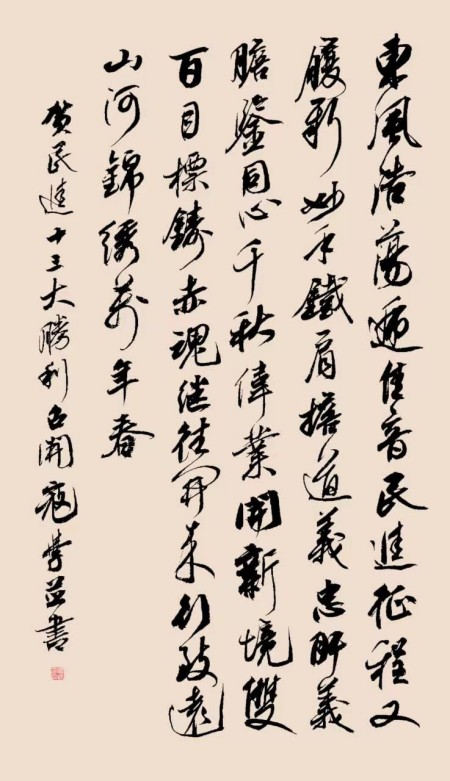 東風浩蕩遞佳音民進征程又
履新妙手鐵肩擔道義忠肝義
膽鑒同心千秋偉業開新境雙
百目標鑄赤魂继往开来行致遠
山河錦繡萬年春
賀民進十三大勝利召開寇學書